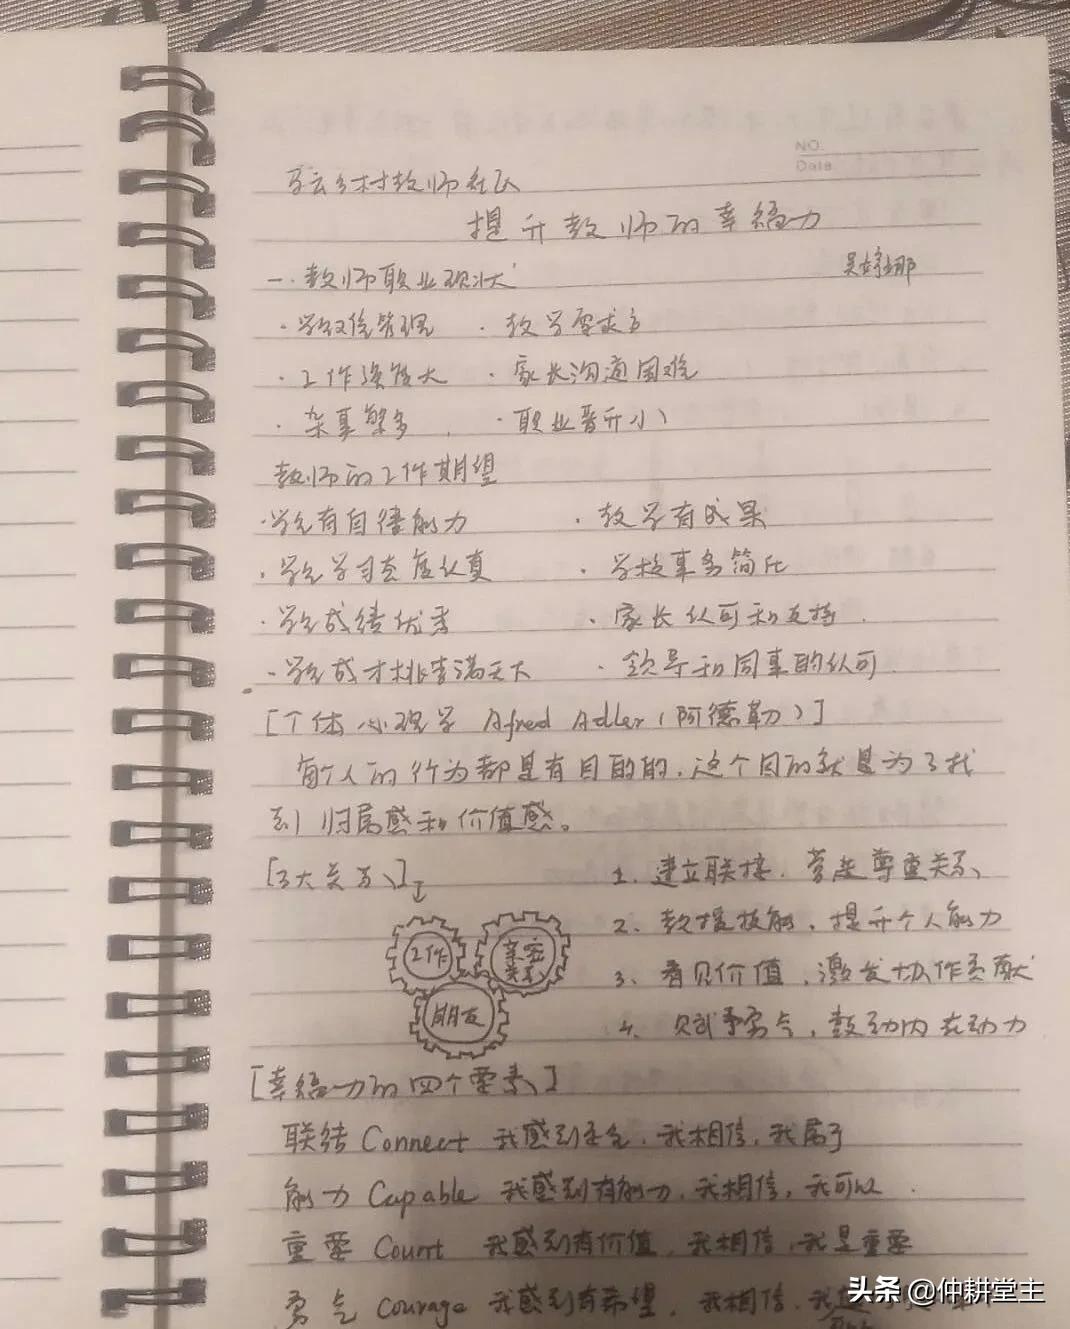 NO.
Date
乡村教师社区
提升教师的幸福力
一、教师职业现状
吴婷娜
·学生管理 ·教学要求多
·工作强度大 ·家长沟通困难
·杂事繁多, ·职业晋升小
教师的工作期望
·学生有自律能力 ·教学有成果
·学生学习态度认真 ·学校事务简化
·学生成绩优秀 ·家长认可和支持
·学生成才桃李满天下 ·领导和同事的认可
[个体心理学 Afred Adler(阿德勒)]
每个人的行为都是有目的的,这个目的就是为了找
到归属感和价值感。
[3大关系]
1、建立联接,营造尊重关系
工作 亲密关系 朋友
2、教授技能,提升个人能力
3、看见价值,激发协作贡献
4、赋予勇气,鼓动内在动力
[幸福力的四个要素]
联结 Connect 我感到安全,我相信,我属于
能力 Capable 我感到有能力,我相信,我可以.
重要 Count 我感到有价值,我相信,我是重要
勇气 Courage 我感到有希望,我相信,我
头条 @仲耕堂主